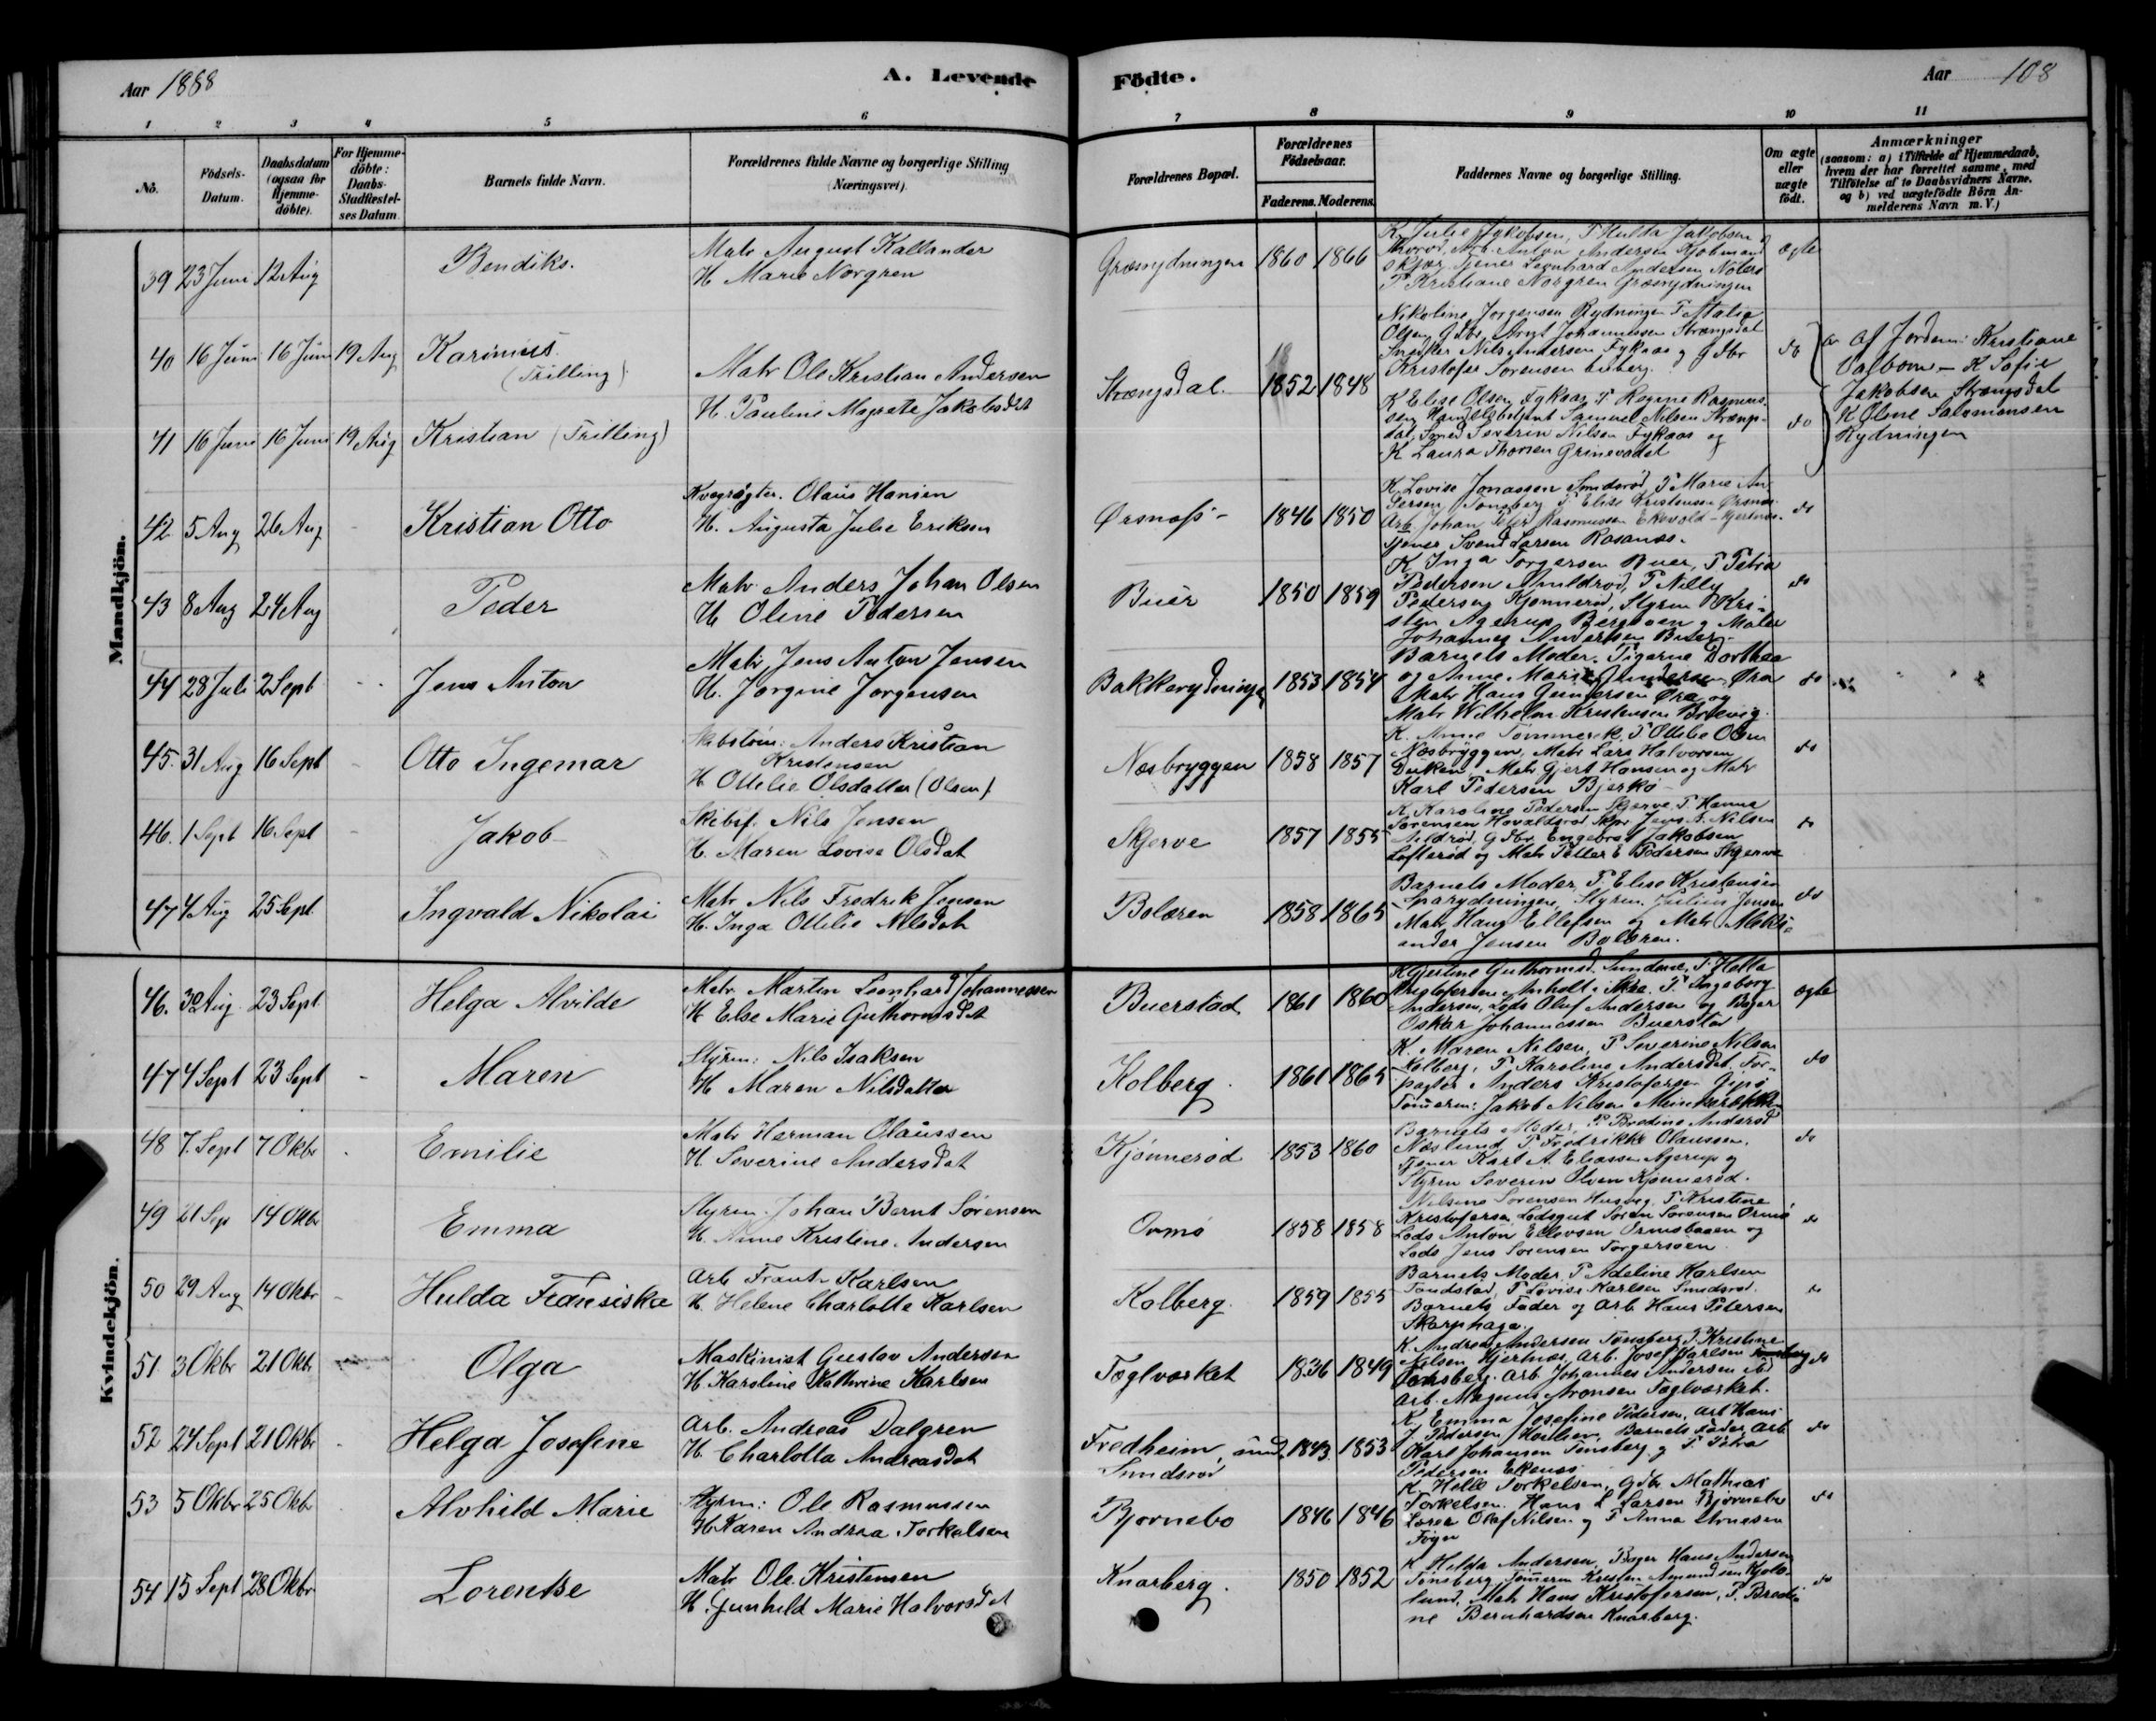 Aar 1888
A. Levende
Födte.
Aar 108
1 2 3 4 5 6 7 8 9 10 11
No.
Födsels-Datum.
Daabsdatum (ogsaa for Hjemmedöbte).
For Hjemmedöbte: Daabs-Stadfæstelses Datum.
Barnets fulde Navn.
Forældrenes fulde Navne og borgerlige Stilling (Næringsvei).
Forældrenes Bopæl.
Forældrenes Födselsaar.
Faderens. Moderens.
Faddernes Navne og borgerlige Stilling.
Om ægte eller uægte födt.
Anmærkninger (saasom: a) i Tilfælde af Hjemmedaab, hvem der har forrettet samme, med Tilföielse af to Daabsvidners Navne, og b) ved uægtefödte Börn Anmelderens Navn m. V.)
Mandkjön.
39 23 Juni 12 Aug Bendiks.
Matr August Kallander
H Marie Norgren
Græsrydningen 1860 1866
K Julie Jakobsen, P Hulda Jakobsen
Anton Andersen Kjøbmand
Tjener Leonhard Andersen Nøters
P Kristiane Norgren Græsrydningen
ægte
40 16 Juni 16 Juni 19 Aug Karinius
(Trilling)
Matr Ole Kristian Andersen
H. Pauline Magrete Jakobsdt
Strængsdal. 1852 1848
Nikoline Jorgensen Rydningen P Malie
Olsen, Gdbr Arnt Johannessen Strængsdal
Snedker Nils Andersen Fykaas g Gdbr
Kristofer Sorensen
do
a Af Jordem. Kristiane
Dalbom – K Sofie
Jakobsen Strængsdal
K Oline Salomonsen
Rydningen
41 16 Juni 16 Juni 19 Aug Kristian (Trilling)
K Elise Olsen Fykaas, P Regine Rasmus
sen Handelsbetjent Samuel Nilsen Stræng-
dal, Smed Severin Nilsen Fykaas og
K Laura Thorsen Grinevadet
do
42 5 Aug 26 Aug - Kristian Otto
Kvægrøgter. Olaus Hansen
H. Augusta Julie Eriksen
Ørsnæs - 1846 1850
K. Lovise Jonassen Smidsrød, P Marie An
dersen Tonsberg P. Elise Kristensen Ørsnæs
Arb. Johan Peter Rasmussen Ekevold - Hjertnæs
Tjener Svend Larsen Rosanæs.
do
43 8 Aug 24 Aug Peder
Matr Anders Johan Olsen
H Oline Pedersen
Buer 1850 1859
K Inga Jorgensen Buer, P Petra
Pedersen Amildrød, P Nelly
Pedersen Kjonnerød, Styrm Kri-
sten Agerup Bergsoen g Maler
Johannes Andersen Buer.
do
44 28 Juli 2 Sept Jens Anton
Matr, Jens Anton Jensen
H. Jorgine Jorgensen
Bakkerydningen 1853 1854
Barnets Moder. Pigerne Dorthea
og Anne Marie Gundersen Øra
Matr Hans Gundersen Øra og
Matr Wilhelm Kristensen Brevig.
do
45. 31 Aug 16 Sept Otto Ingemar
Skibstøm: Anders Kristian
Kristensen
H Ottilie Olsdatter (Olsen)
Næsbryggen 1858 1857
K. Anne Tommerek. P Ottilie Olsen
Næsbryggen, Matr Lars Halvorsen
Duken, Matr Gjert Hansen og Matr
Karl Pedersen Bjerkø
do
46. 1 Sept 16 Sept - Jakob
Skibsf. Nils Jensen
H. Maren Lovise Olsdat
Skjerve 1857 1855
K Karoline Pedersen Skjerve, P Hanna
Sørensen Havaldsrød Skpr Jens A. Nilsen
Gdbr Engebret Jakobsen
Lofterød og Matr Petter E Pedersen Skjerve
do
47 4 Aug 25 Sept Ingvald Nikolai
Matr Nils Fredrik Jensen
H. Inga Ottilie Nilsdat
Bolæren 1858 1865
Barnets Moder, P. Elise Kristensen
Sparydningen, Styrm. Julius Jensen
Matr Hans Ellefsen og Matr Aleks-
ander Jensen Bolæren.
do
Kvindekjön.
46. 30 Aug 23 Sept Helga Alvilde
Matr Martin Leonhard Johannessen
H Else Marie Guthormsdt
Buerstad 1861 1860
K Gjertine Guthormsd. Sundene, P. Hella
Kristofersen P. Ingeborg
Andersen, Lods Oluf Andersen og Bager
Oskar Johannessen Buerstad
ægte
47 4 Sept 23 Sept - Maren
Styrm: Nils Isaksen
H Maren Nilsdatter
Kolberg. 1861 1865
K. Maren Nilsen, P Severine Nilsen
Kolberg, P Karoline Andersdt. For-
pagter Anders Kristofersen Gipø
Tommerm: Jakob Nilsen
do
48 7. Sept 7 Okbr Emilie
Matr Herman Olaussen
H. Severine Andersdat
Kjønnerød 1853 1860
Barnets Moder, P. Bredine Andersd
Næslund, P Fredrikke Olaussen.
Tjener Karl A. Eliassen Agerup og
Styrm Severin Olsen Kjønnerød.
do
49 21 Sep 14 Okbr Emma
Styrm. Johan Bernt Sørensen
H. Anne Kristine Andersen
Ormø 1858 1858
Nilsine Sorensen Husvig, P Kristine
Kristofersen, Lodsgut Søren Sorensen Ormø
Lods Anton Ellevsen Ormebogen og
Lods Jens Sorensen Torgersøen.
do
50 29 Aug 14 Okbr - Hulda Fransiska
Arb Frants Karlsen
H. Helene Charlotte Karlsen
Kolberg. 1859 1855
Barnets Moder, P Adeline Karlsen
Fondstad, P Lovise Karlsen Smidsrød.
Barnets Fader og Arb Hans Petersen
Skarphaga.
do
51 3 Okbr 21 Okbr Olga
Maskinist Gustav Andersen
H. Karoline Kathrine Karlsen
Teglværket 1836 1849
K. Andrea Andersen Tonsberg P. Kristine
Nilsen Hjertnæs, Arb. Josef Karlsen
Tonsberg. Arb Johannes Andersen ibd
Arb. Magnus Aronsen Teglværket.
do
52 24 Sept 21 Okbr Helga Josefine
Arb. Andreas Dalgren
H. Charlotta Andreasdat
Fredheim, und.
Smidsrød
1843 1853
K. Emma Josefine Pedersen, Arb Hans
J. Pedersen Barnets Fader, Arb
Karl Johansen Tonsberg, g P Petra
Pedersen Ekenæs
do
53 5 Okbr 25 Okbr Alvhild Marie
Styrm: Ole Rasmussen
H Karen Andrea Torkelsen
Bjornebo 1846 1846
K Helle Torkelsen, Gdbr. Mathias
Torkelsen. Hans L Larsen Bjornebo
Lærer Olaf Nilsen g P Anna Arnesen
Føyn
do
54 15 Sept 28 Okbr Lorentse
Matr Ole Kristensen
H. Gunhild Marie Halvorsdt
Knarberg. 1850 1852
K Hilda Andersen, Bager Hans Andersen
Tønsberg, Tommerm Kristen Amundsen
lund, Matr Hans Kristofersen, P. Bredi-
ne Bernhardsen Knarberg.
do